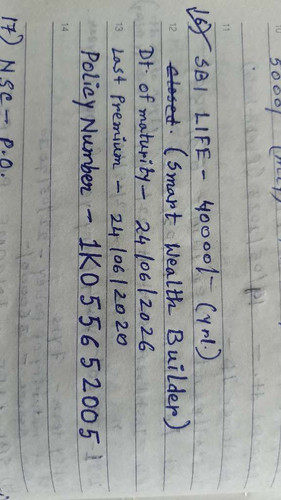 5000/
16) SBI LIFE - 40000/- (yrl.)
Closed. (Smart Wealth Builder)
Dt. of maturity - 24/06/2026
Last Premium - 24/06/2020
Policy Number - 1K055652005
17) NSC - P.O.
10
11
12
13
14